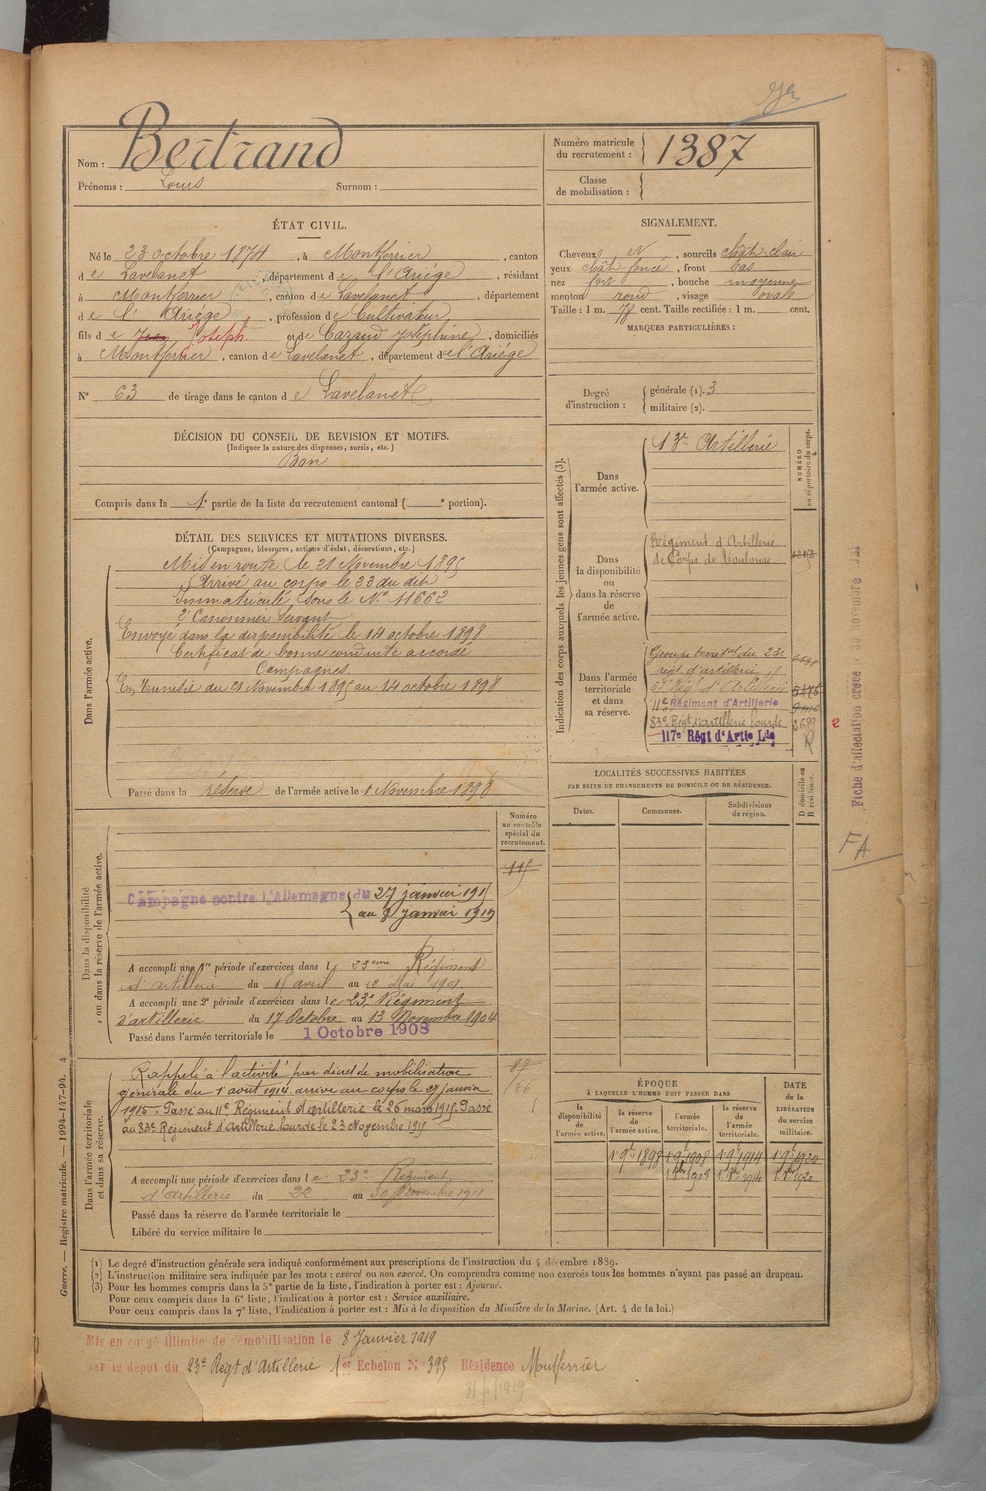 Nom : Bertrand
Prénoms : Louis Surnom :
Numéro matricule du recrutement : 1387
Classe de mobilisation :
ÉTAT CIVIL.
Né le 23 octobre 1874, à Montferrier, canton
de Lavelanet, département de l'Ariège, résidant
à Montferrier, canton de Lavelanet, département
de l'Ariège, profession de Cultivateur
fils de Jean Joseph et de Cazaud Joséphine, domiciliés
à Montferrier, canton de Lavelanet, département de l'Ariège
N° 63 de tirage dans le canton de Lavelanet
SIGNALEMENT.
Cheveux N, sourcils chât. clair
yeux chât. foncé, front bas
nez fort, bouche moyenne
menton rond, visage ovale
Taille : 1 m. cent. Taille rectifiée : 1 m. cent.
MARQUES PARTICULIÈRES :
Degré d'instruction : générale (1). 3
militaire (2).
DÉCISION DU CONSEIL DE REVISION ET MOTIFS.
(Indiquer la nature des dispenses, sursis, etc.)
Bon
Compris dans la 1e partie de la liste du recrutement cantonal ( e portion).
DÉTAIL DES SERVICES ET MUTATIONS DIVERSES.
(Campagnes, blessures, actions d'éclat, décorations, etc.)
Dans l'armée active.
Mis en route le 21 Novembre 1895
Arrivé au corps le 23 du dit
Immatriculé sous le N° 11662
2e Canonnier Servant
Envoyé dans la disponibilité le 14 octobre 1898
Certificat de bonne conduite accordé
Campagnes
En Tunisie du 21 Novembre 1895 au 14 octobre 1898
Passé dans la réserve de l'armée active le 1 Novembre 1898
Indication des corps auxquels les jeunes gens sont affectés (3).
NUMÉRO au répertoire du corps.
Dans l'armée active.
13e Artillerie
Dans la disponibilité ou dans la réserve de l'armée active.
Régiment d'Artillerie
de Corps de Toulouse
Dans l'armée territoriale et dans sa réserve.
Groupe territal du 23e
régt d'artillerie
11e Régiment d'Artillerie
83e Régt d'artillerie lourde
2689
117e Régt d'Artie Lde
Fiche d'affectation créée
FA
LOCALITÉS SUCCESSIVES HABITÉES
PAR SUITE DE CHANGEMENTS DE DOMICILE OU DE RÉSIDENCE.
Dates. Communes. Subdivisions de région. D domicile ou R résidence.
Dans la disponibilité ou dans la réserve de l'armée active.
Numéro au contrôle spécial du recrutement.
115
Campagne contre l'Allemagne du 27 janvier 1915
au 8 janvier 1919
A accompli une 1re période d'exercices dans le 23eme Régiment
d'artillerie du 15 avril au 12 Mai 1901
A accompli une 2e période d'exercices dans le 23e Régiment
d'artillerie du 17 Octobre au 13 Novembre 1904
Passé dans l'armée territoriale le 1 Octobre 1908
Dans l'armée territoriale et dans sa réserve.
Rappelé à l'activité par décret de mobilisation
générale du 1 août 1914 arrivé au corps le 27 janvier
1915 - Passé au 11e Régiment d'artillerie le 26 mars 1915. Passé
au 83e Régiment d'artillerie lourde le 23 Novembre 1915
A accompli une période d'exercices dans le 23e Régiment
d'artillerie du 22 au 30 Novembre 1911
Passé dans la réserve de l'armée territoriale le
Libéré du service militaire le
ÉPOQUE
À LAQUELLE L'HOMME DOIT PASSER DANS
la disponibilité de l'armée active. la réserve de l'armée active. l'armée territoriale. la réserve de l'armée territoriale.
DATE de la LIBÉRATION du service militaire.
1 9bre 1898 1 9bre 1908 1 9bre 1914 1 9bre 1920
1 8bre 1908 1 8bre 1914 1 8bre 1920
Guerre. — Registre matricule. — 1994-147-94. 4
(1) Le degré d'instruction générale sera indiqué conformément aux prescriptions de l'instruction du 4 décembre 1889.
(2) L'instruction militaire sera indiquée par les mots : exercé ou non exercé. On comprendra comme non exercés tous les hommes n'ayant pas passé au drapeau.
(3) Pour les hommes compris dans la 5e partie de la liste, l'indication à porter est : Ajourné.
Pour ceux compris dans la 6e liste, l'indication à porter est : Service auxiliaire.
Pour ceux compris dans la 7e liste, l'indication à porter est : Mis à la disposition du Ministre de la Marine. (Art. 4 de la loi.)
Mis en congé illimité de démobilisation le 8 Janvier 1919
par le dépôt du 23e Régt d'Artillerie 1er Echelon N° 395 Résidence Montferrier